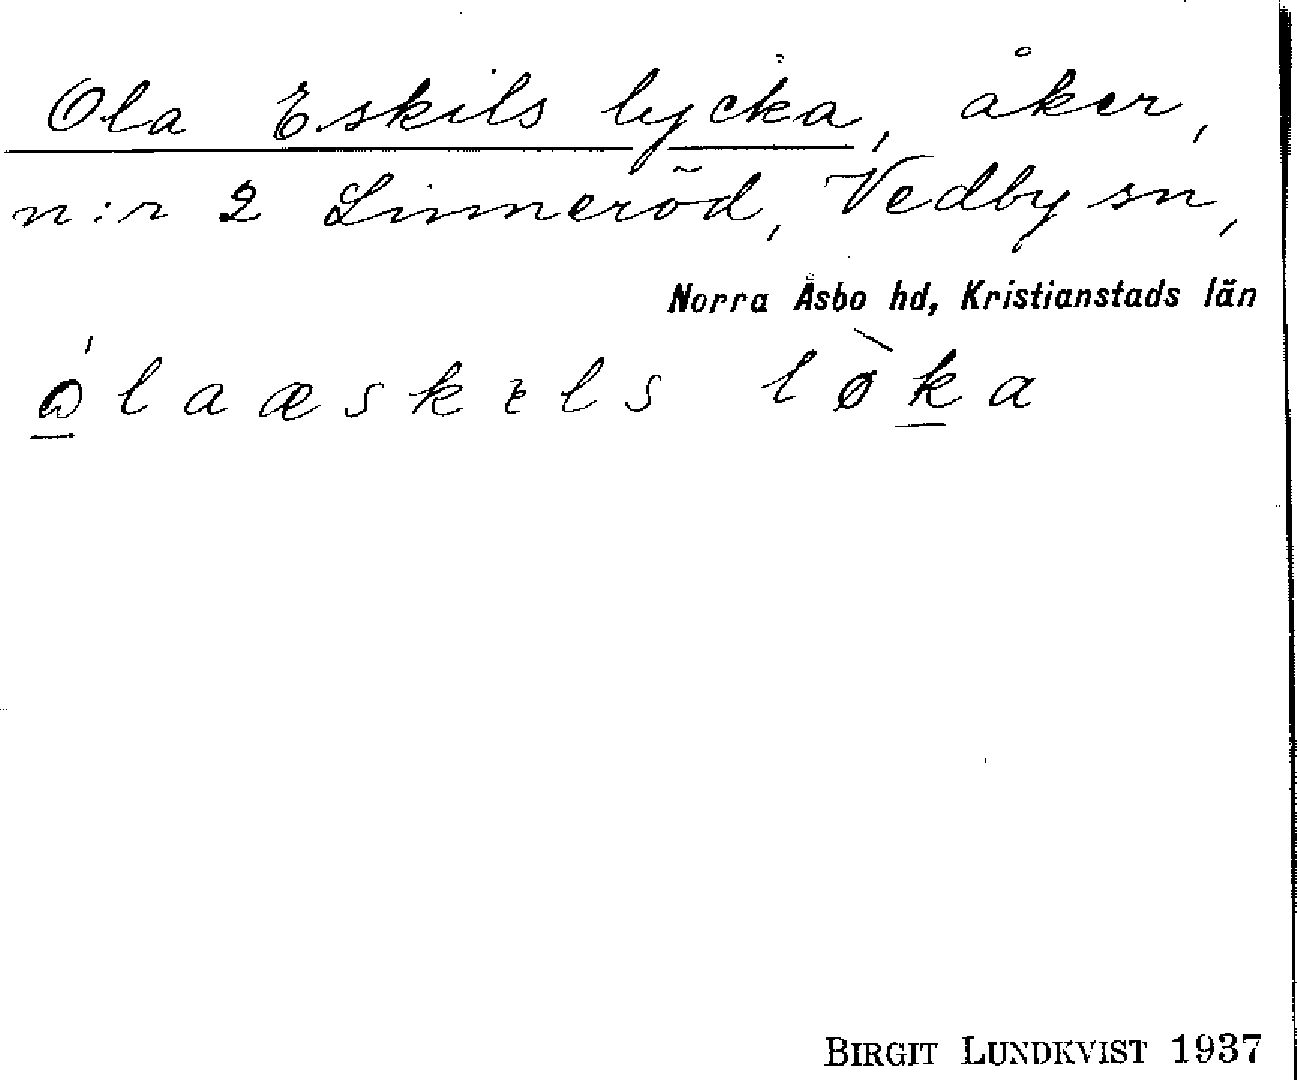 Ola Eskils lycka, åker,
n:r 2 Linneröd, Vedby sn,
Norra Åsbo hd, Kristianstads län
ólaæskɩls lø̀ka
BIRGIT LUNDKVIST 1937